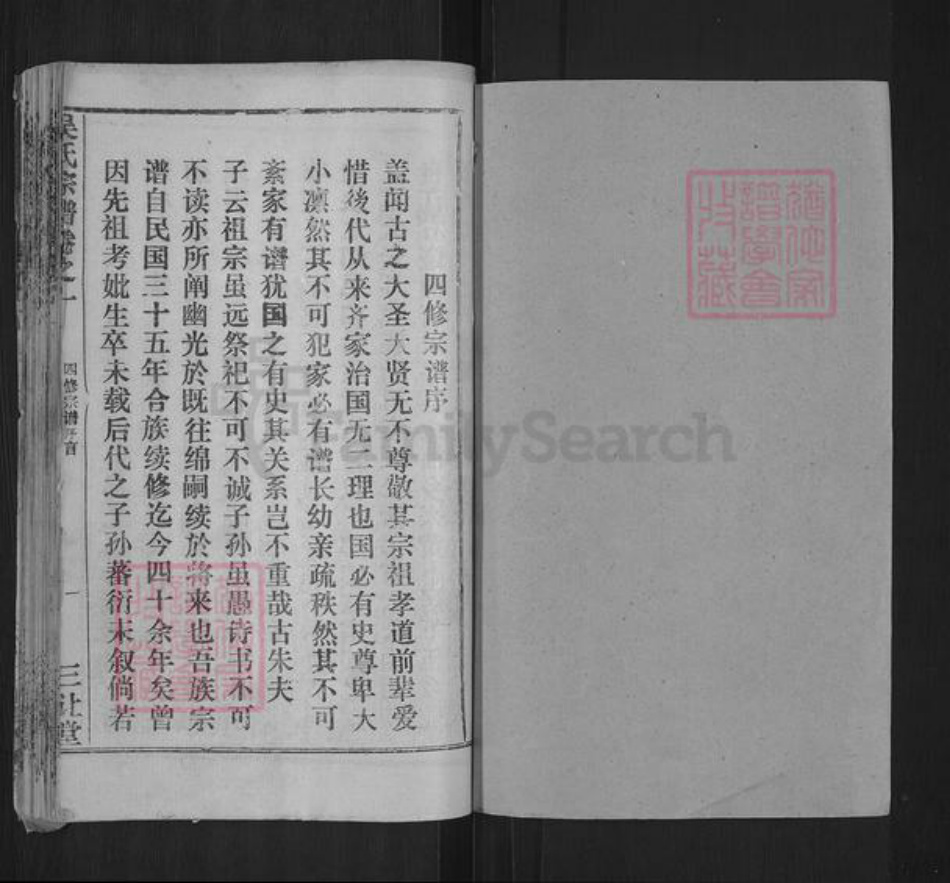 四修宗谱序
盖闻古之大圣大贤无不尊敬其宗祖孝道前辈爱
惜後代从来齐家治国无二理也国必有史尊卑大
小凛然其不可犯家必有谱长幼亲疏秩然其不可
紊家有谱犹国之有史其关系岂不重哉古朱夫
子云祖宗虽远祭祀不可不诚子孙虽愚诗书不可
不读亦所阐幽光於既往绵嗣续於将来也吾族宗
谱自民国三十五年合族续修迄今四十余年矣曾
因先祖考妣生卒未载后代之子孙蕃衍未叙倘若
吴氏宗谱卷之一
四修宗谱序言
一
三让堂
FamilySearch